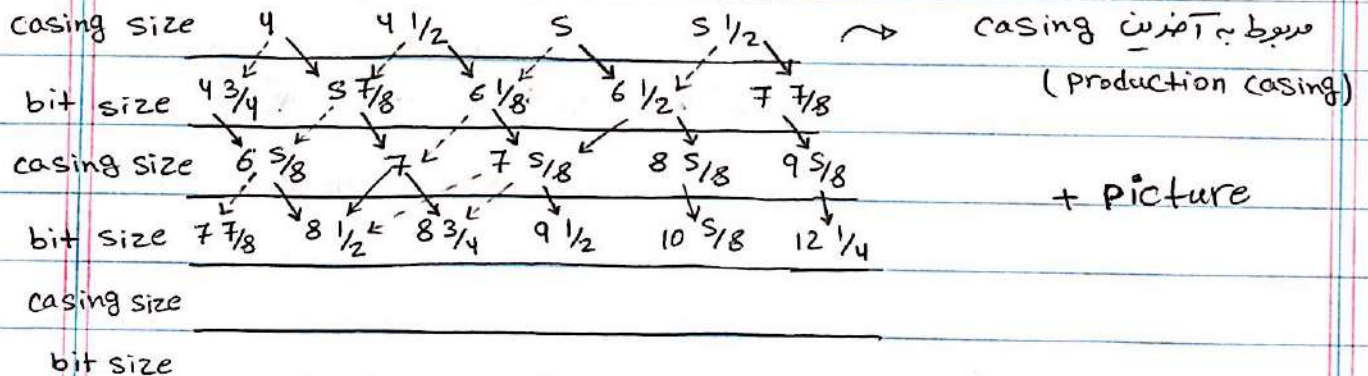 casing size 4 4 1/2 5 5 1/2 مربوط به آخرین casing
(production casing)
bit size 4 3/4 5 7/8 6 1/8 6 1/2 7 7/8
casing size 6 5/8 7 7 5/8 8 5/8 9 5/8
+ picture
bit size 7 7/8 8 1/2 8 3/4 9 1/2 10 5/8 12 1/4
casing size
bit size